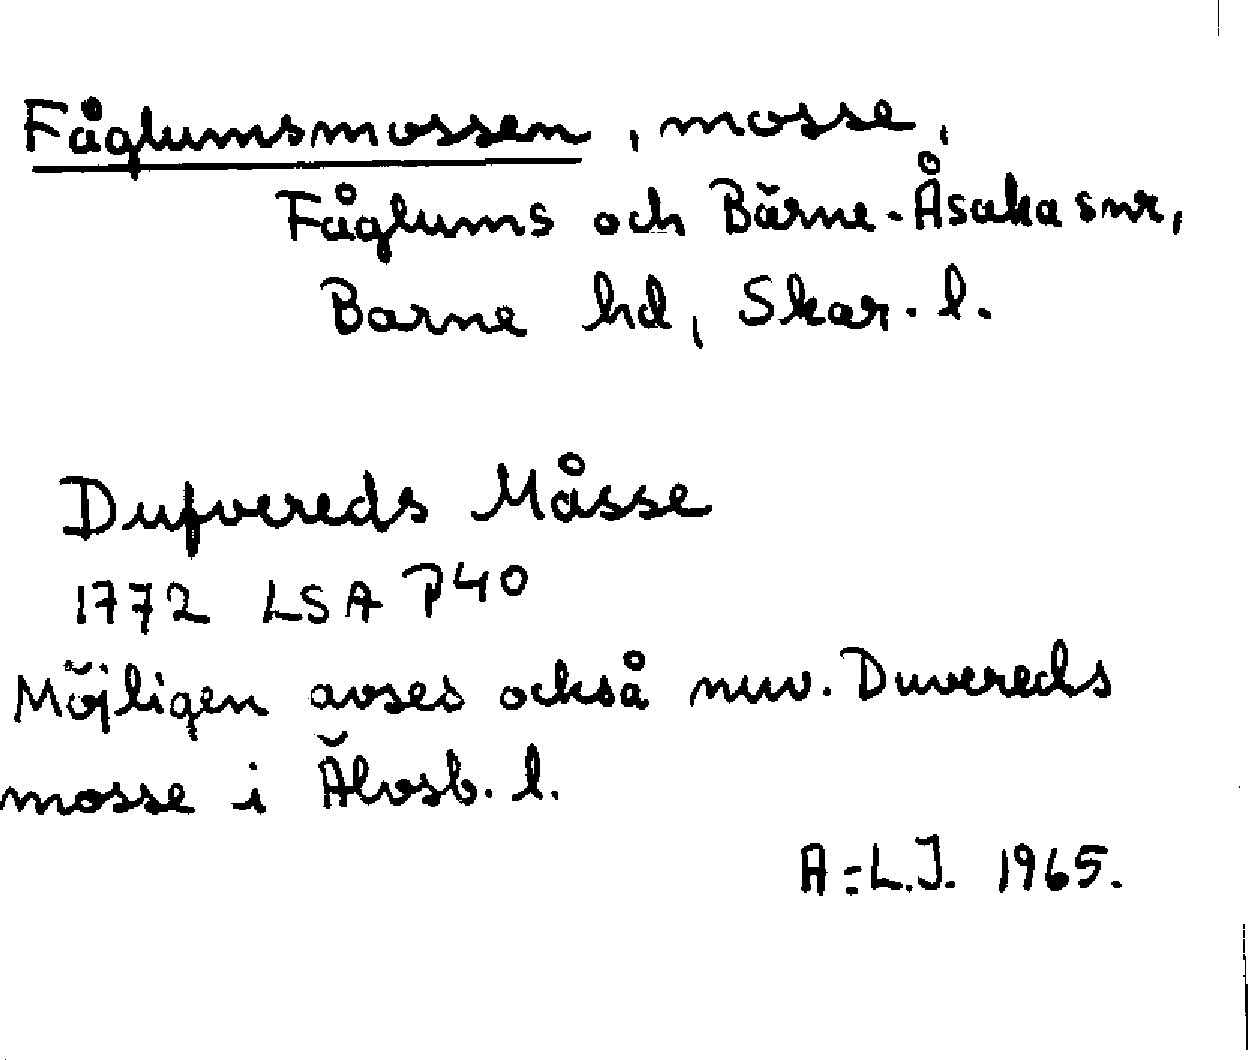 Fåglumsmossen, mosse,
Fåglums och Bärne-Åsaka snr,
Barne hd, Skar. l.
Dufvereds Måsse
1772 LSA P40
Möjligen avses också nuv. Duvereds
mosse i Älvsb. l.
A-L.J. 1965.